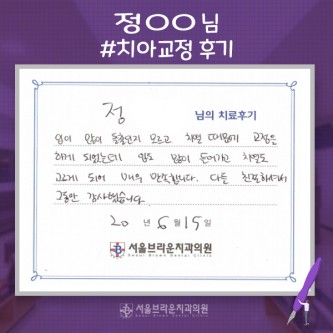 정OO님
#치아교정 후기
정 님의 치료후기
입이 많이 돌출인지 모르고 치열 때문에 교정을
하게 되었는데 입도 많이 들어가고 치열도
고르게 되어 매우 만족합니다. 다들 친절하셔서
그동안 감사했습니다.
20 년 6 월 15 일
서울브라운치과의원
Seoul Brown Dental Clinic
서울브라운치과의원